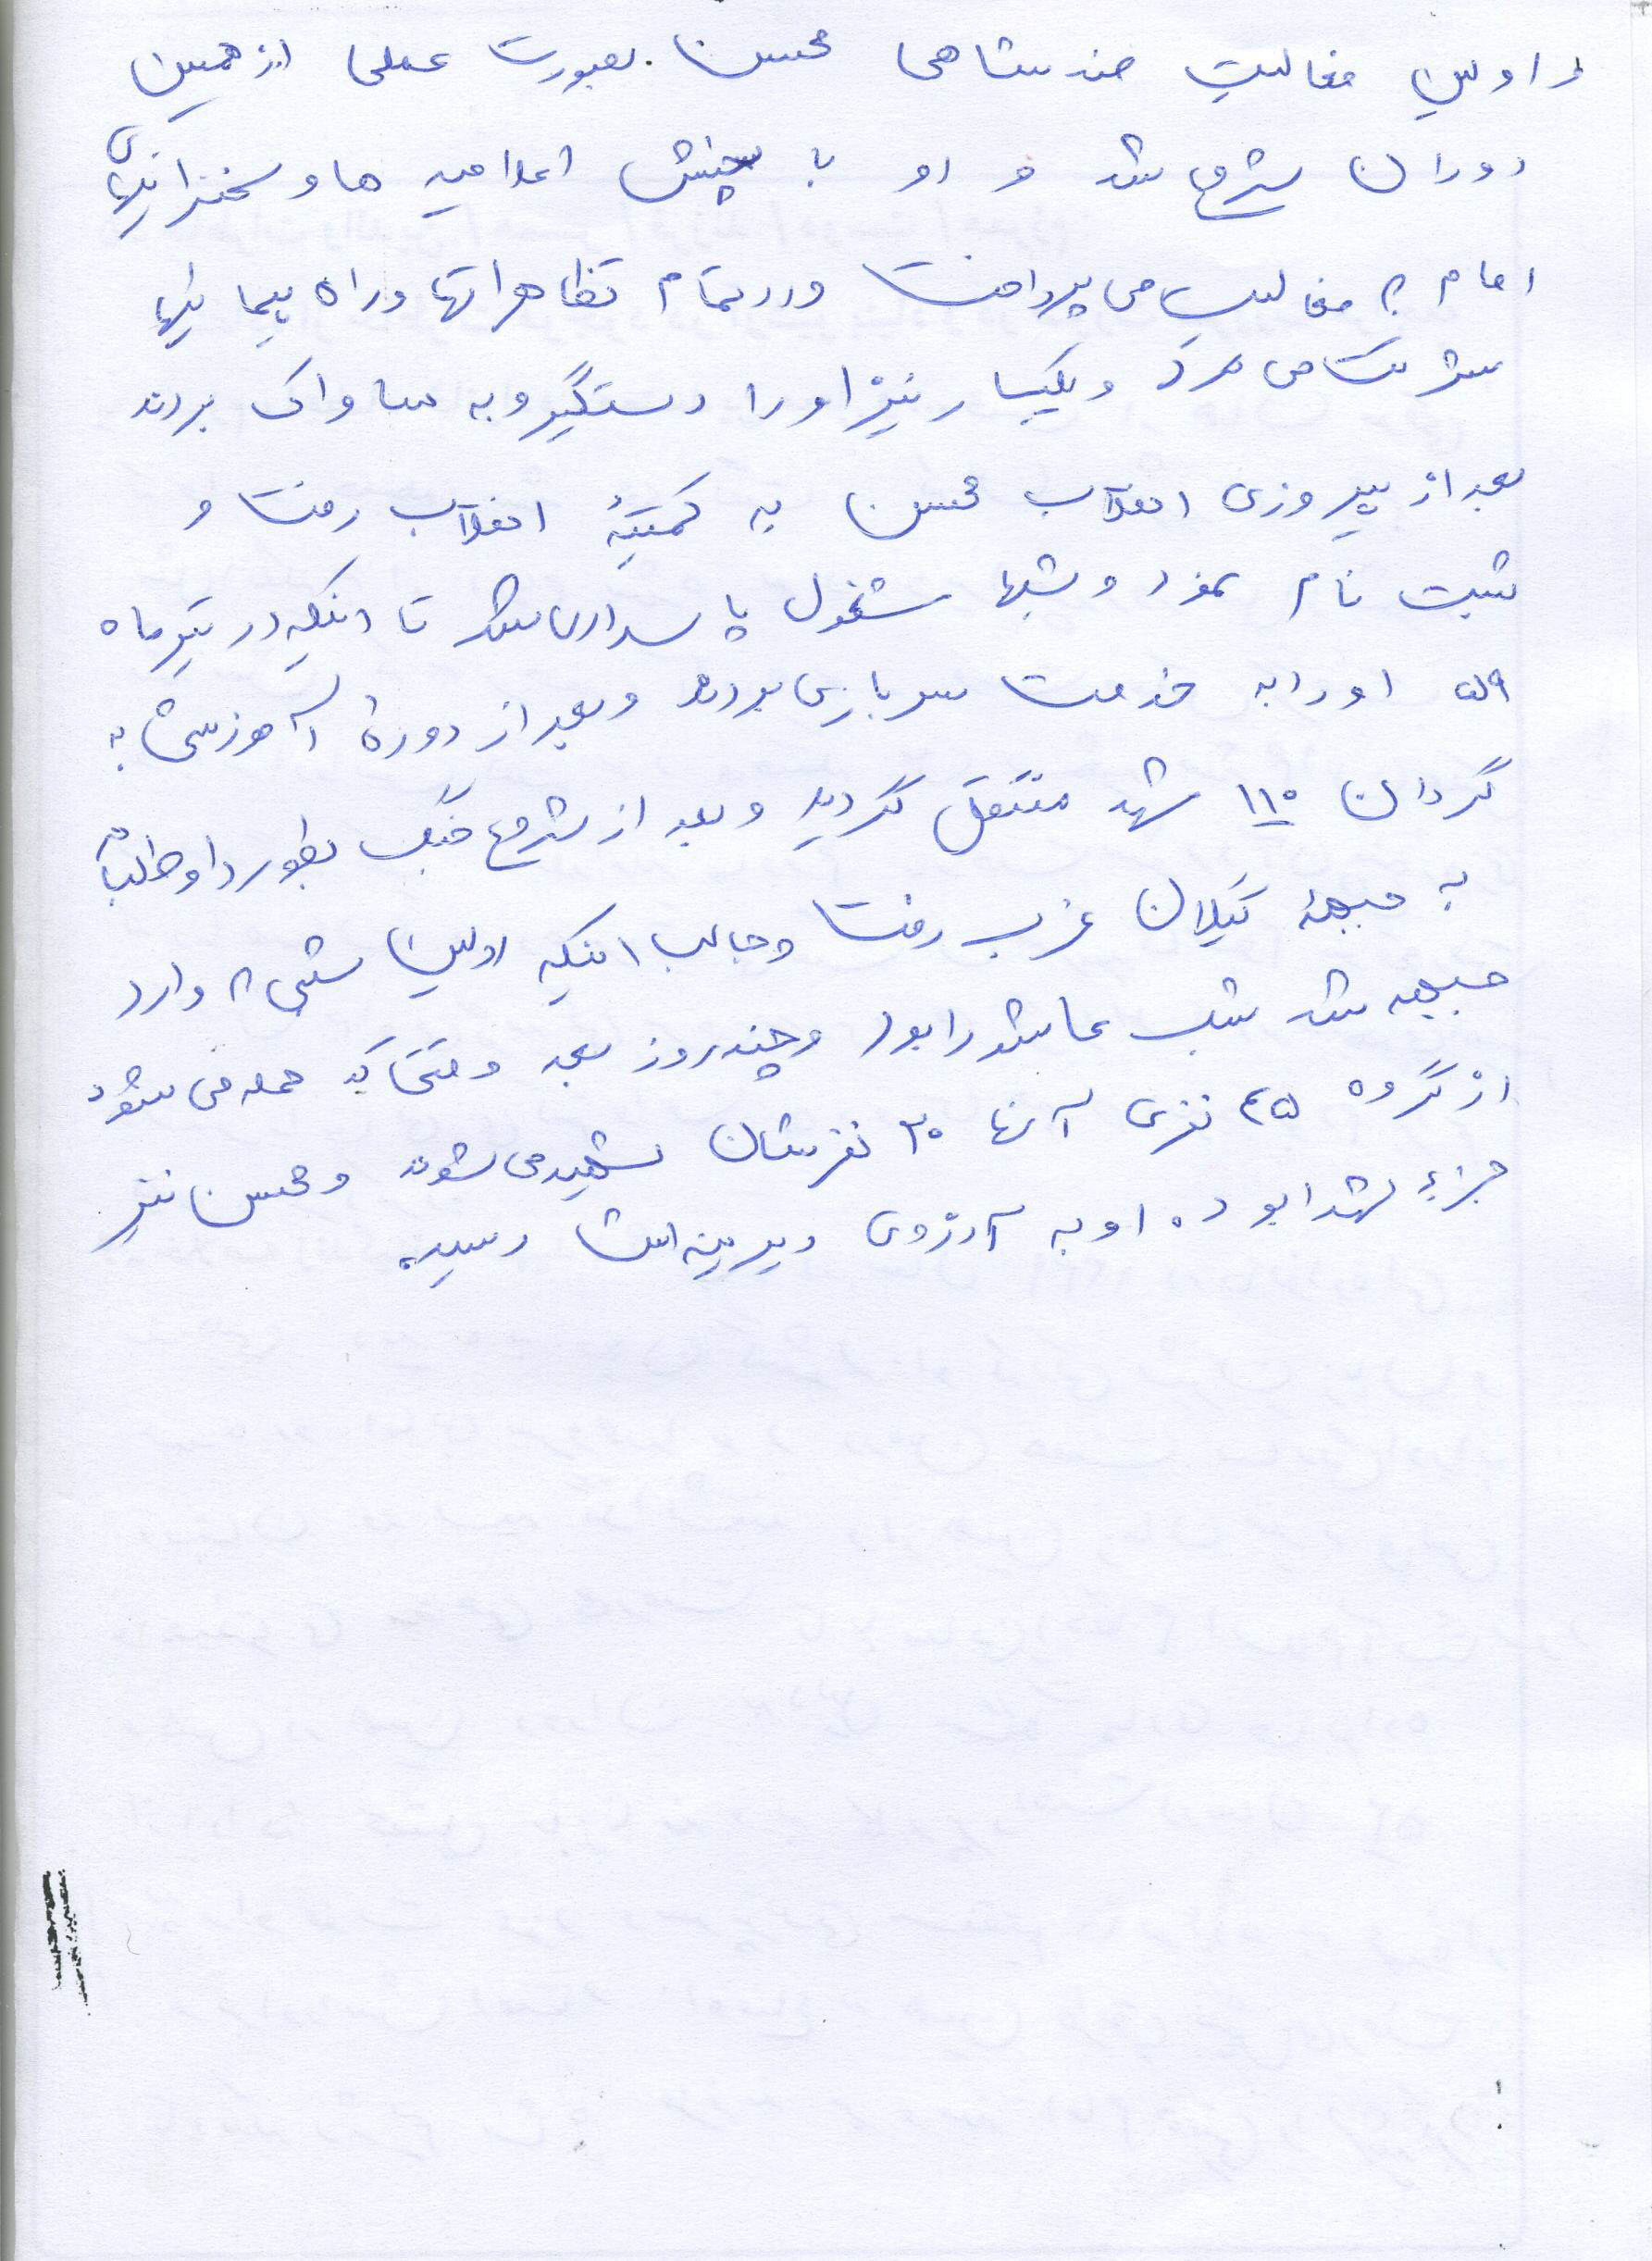 و اولین فعالیت ضد شاهی محسن بصورت عملی از همین
دوران شروع شد و او با پخش اعلامیه ها و سخنرانیهای
امام به فعالیت می پرداخت و در تمام تظاهراتها و راه پیمائیها
شرکت می کرد و یکبار نیز او را دستگیر و به ساواک بردند
بعد از پیروزی انقلاب محسن به کمیتهٔ انقلاب رفت و
ثبت نام نمود و شبها مشغول پاسداری شد تا اینکه در تیرماه
۵۹ او را به خدمت سربازی بردند و بعد از دورهٔ آموزشی به
گردان ۱۱۰ شهد منتقل گردید و بعد از شروع جنگ بطور داوطلبانه
به جبههٔ گیلان غرب رفت و جالب اینکه اولین شبی که وارد
جبهه شد شب عاشورا بود و چند روز بعد وقتی که حمله می شود
از گروه ۴۵ نفری آنها ۳۰ نفرشان شهید می شوند و محسن نیز
جزء شهدا بود. او به آرزوی دیرینه اش رسید.